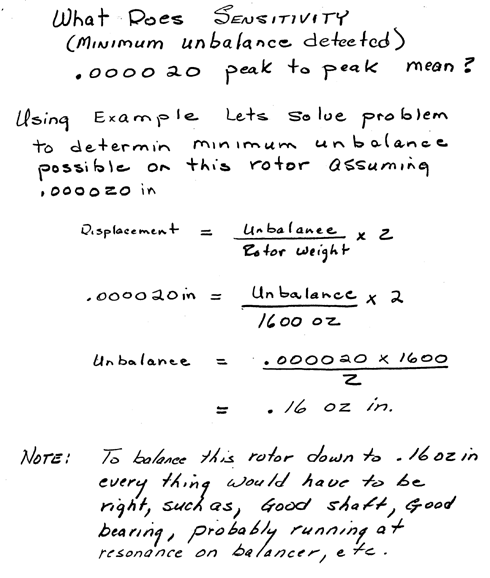 What Does SENSITIVITY
(MINIMUM unbalance detected)
.000020 peak to peak mean?
Using Example Lets solve problem
to determin minimum unbalance
possible on this rotor assuming
.000020 in
Displacement = Unbalance / Rotor weight x 2
.000020 in = Unbalance / 1600 oz x 2
Unbalance = .000020 x 1600 / 2
= .16 oz in.
NOTE: To balance this rotor down to .16 oz in
every thing would have to be
right, such as, Good shaft, Good
bearing, probably running at
resonance on balancer, etc.